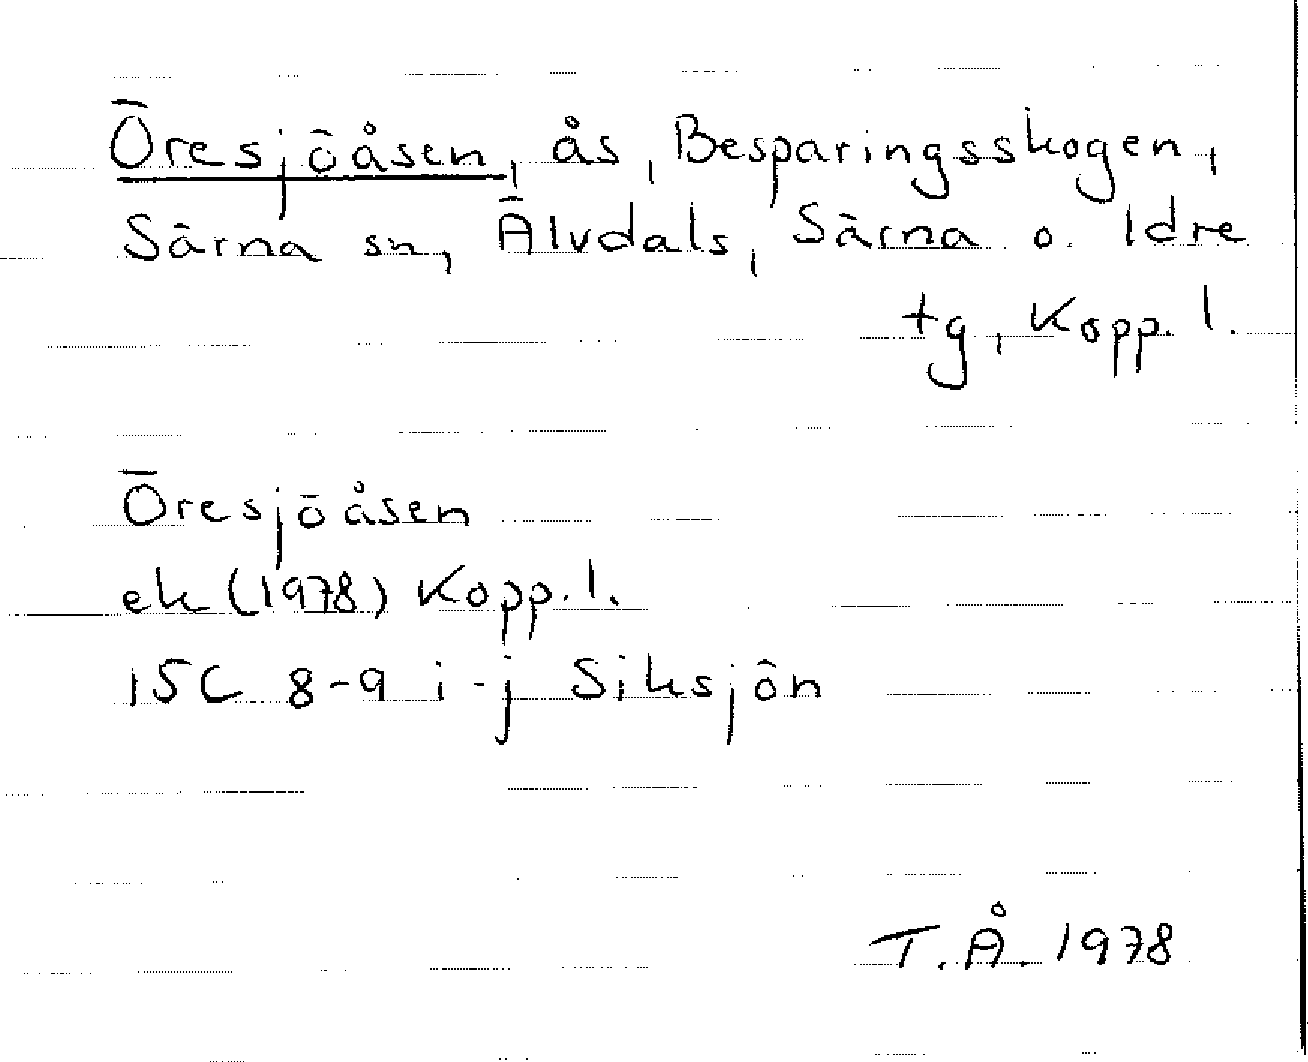 Öresjöåsen, ås, Besparingsskogen,
Särna sn, Älvdals, Särna o. Idre
tg, Kopp. l.
Öresjöåsen
ek (1978) Kopp. l.
15C 8-9 i-j Siksjön
T.Å. 1978